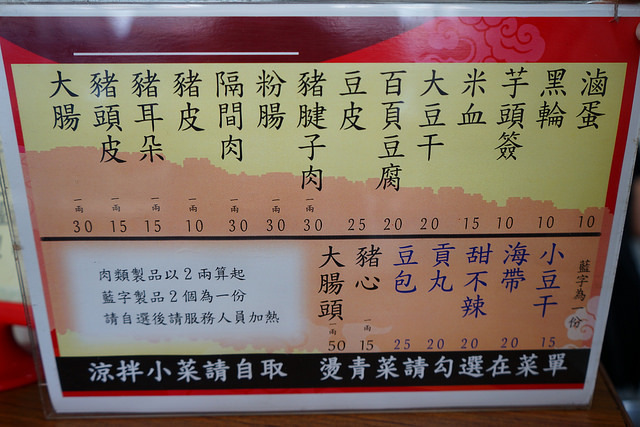 滷蛋 10
黑輪 10
芋頭簽 10
米血 15
大豆干 20
百頁豆腐 20
豆皮 25
豬腱子肉 一兩 30
粉腸 一兩 30
隔間肉 一兩 30
豬皮 10
豬耳朵 一兩 15
豬頭皮 一兩 15
大腸 一兩 30
藍字為一份
小豆干 15
海帶 20
甜不辣 20
貢丸 20
豆包 25
豬心 一兩 15
大腸頭 一兩 50
肉類製品以2兩算起
藍字製品2個為一份
請自選後請服務人員加熱
涼拌小菜請自取 燙青菜請勾選在菜單